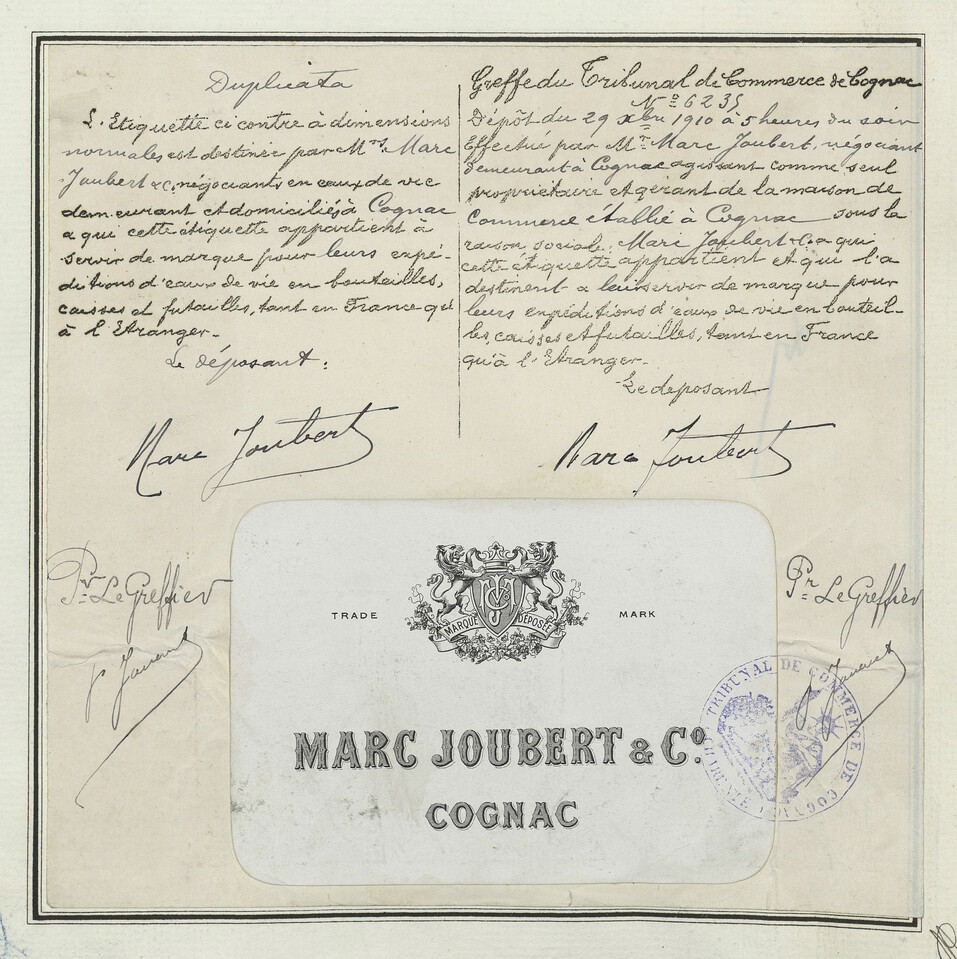 Duplicata
L'Etiquette ci contre à dimensions
normales est destinée par Mrs. Marc
Joubert & C. négociants en eaux de vie
demeurant et domiciliés à Cognac
a qui cette étiquette appartient à
servir de marque pour leurs expé-
ditions d'eaux de vie en bouteilles,
caisses et futailles, tant en France qu'
à l'Etranger.
Le déposant:
Marc Joubert
Greffe du Tribunal de Commerce de Cognac
No 6235
Dépôt du 29 xbre 1910 à 5 heures du soir
Effectué par Mr Marc Joubert, négociant
demeurant à Cognac agissant comme seul
propriétaire et gérant de la maison de
Commerce établie à Cognac sous la
raison sociale: Marc Joubert & C. a qui
cette étiquette appartient et qui l'a
destinent a leur servir de marque pour
leurs expéditions d'eaux de vie en bouteil-
les, caisses et futailles, tant en France
qu'à l'Etranger.
Le deposant
Marc Joubert
Pr Le Greffier
Pr Le Greffier
TRADE MARK
MARQUE DÉPOSÉE
MARC JOUBERT & Co.
COGNAC
TRIBUNAL DE COMMERCE DE COGNAC